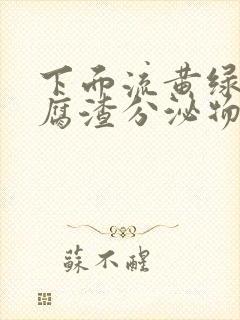 下面流黄绿
腐渣分泌物
苏不醒